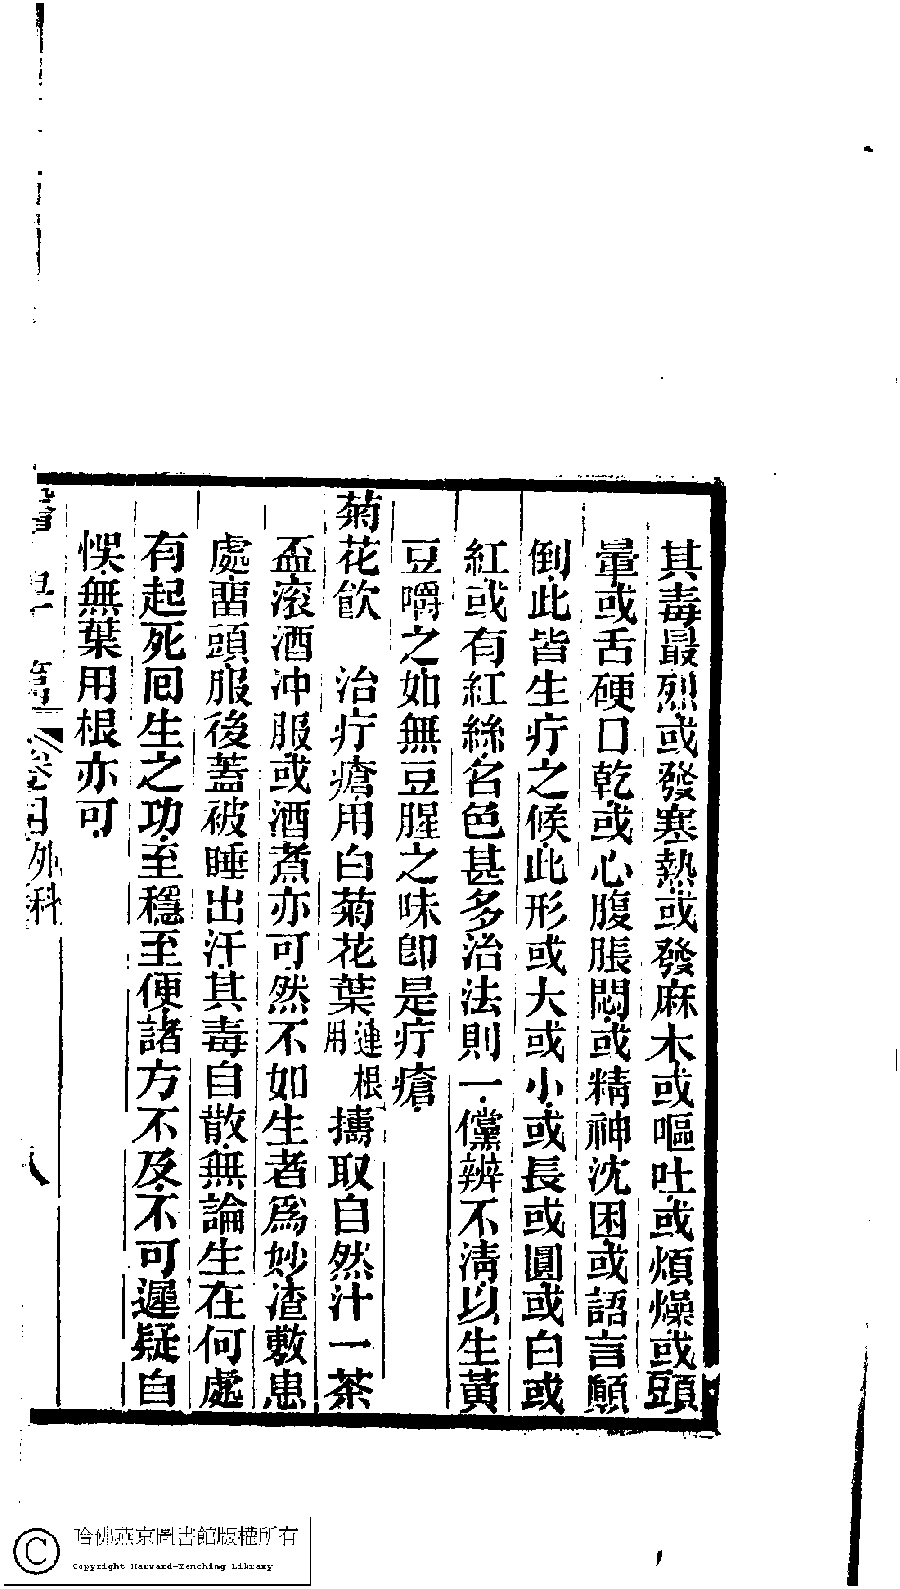 其毒最烈或發寒熱或發麻木或嘔吐或煩燥或頭
暈或舌硬口乾或心腹脹悶或精神沈困或語言顛
倒此皆生疔之候此形或大或小或長或圓或白或
紅或有紅絲名色甚多治法則一儻辨不清以生黃
豆嚼之如無豆腥之味卽是疔瘡
菊花飲 治疔瘡用白菊花葉連根用擣取自然汁一茶
盃滚酒冲服或酒煮亦可然不如生者爲妙渣敷患
處畱頭服後蓋被睡出汗其毒自散無論生在何處
有起死囘生之功至穩至便諸方不及不可遲疑自
悞無葉用根亦可
卷四外科
八
哈佛燕京圖書館版權所有
Copyright Harvard-Yenching Library